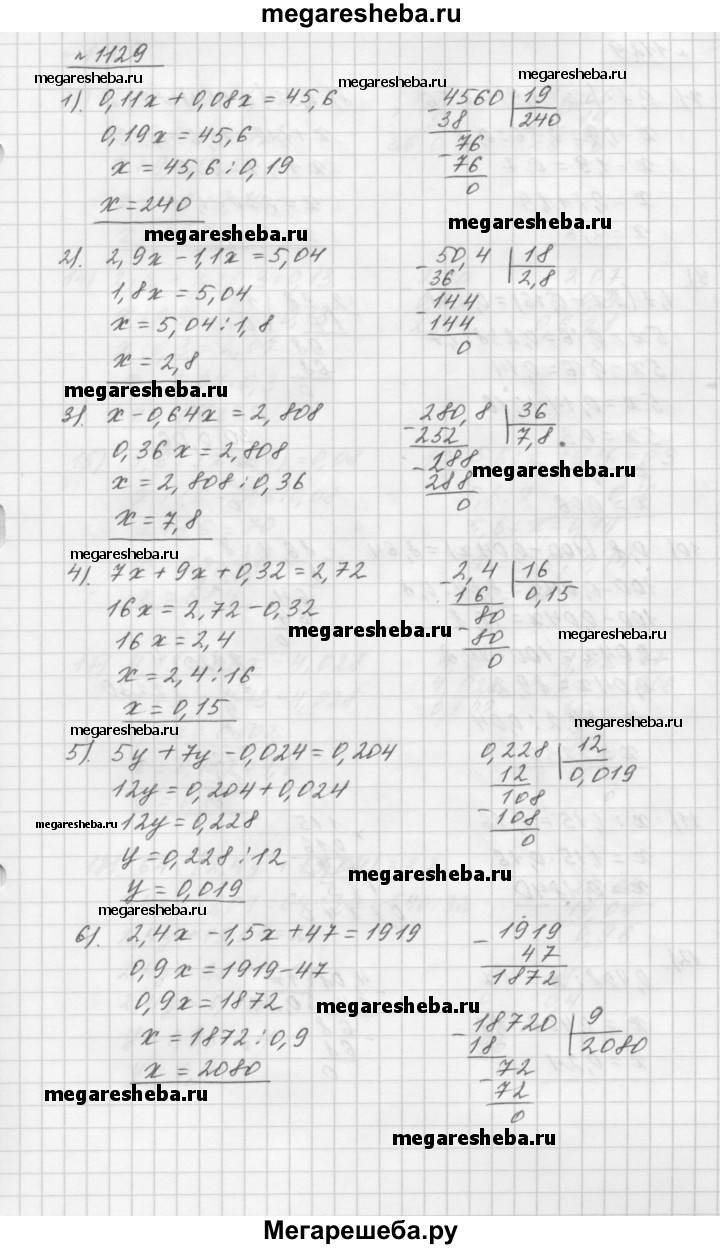 megaresheba.ru
№ 1129
megaresheba.ru megaresheba.ru megaresheba.ru
1). 0,11x + 0,08x = 45,6
0,19x = 45,6
x = 45,6 : 0,19
x = 240
- 4560 | 19
38 240
- 76
76
0
megaresheba.ru megaresheba.ru
2). 2,9x - 1,1x = 5,04
1,8x = 5,04
x = 5,04 : 1,8
x = 2,8
- 50,4 | 18
36 2,8
- 144
144
0
megaresheba.ru
3). x - 0,64x = 2,808
0,36x = 2,808
x = 2,808 : 0,36
x = 7,8
- 280,8 | 36
252 7,8.
- 288
288
0
megaresheba.ru
megaresheba.ru
4). 7x + 9x + 0,32 = 2,72
16x = 2,72 - 0,32
16x = 2,4
x = 2,4 : 16
x = 0,15
- 2,4 | 16
16 0,15
- 80
80
0
megaresheba.ru megaresheba.ru
megaresheba.ru megaresheba.ru
5). 5y + 7y - 0,024 = 0,204
12y = 0,204 + 0,024
12y = 0,228
y = 0,228 : 12
y = 0,019
0,228 | 12
12 0,019
- 108
108
0
megaresheba.ru megaresheba.ru
megaresheba.ru
6). 2,4x - 1,5x + 47 = 1919
0,9x = 1919 - 47
0,9x = 1872
x = 1872 : 0,9
x = 2080
- 1919
47
1872
- 18720 | 9
18 2080
- 72
72
0
megaresheba.ru
megaresheba.ru
megaresheba.ru
Мегарешеба.ру